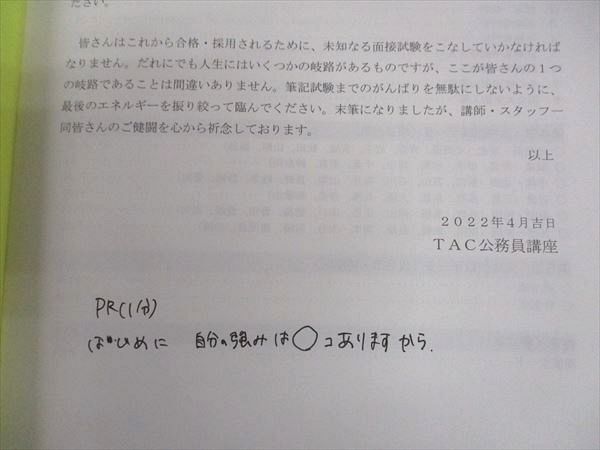 ださい。
皆さんはこれから合格・採用されるために、未知なる面接試験をこなしていかなければ
なりません。だれにでも人生にはいくつかの岐路があるものですが、ここが皆さんの１つ
の岐路であることは間違いありません。筆記試験までのがんばりを無駄にしないように、
最後のエネルギーを振り絞って臨んでください。末筆になりましたが、講師・スタッフ一
同皆さんのご健闘を心から祈念しております。
以上
２０２２年４月吉日
ＴＡＣ公務員講座
PR(1分)
はじめに 自分の強みは〇コありますから.